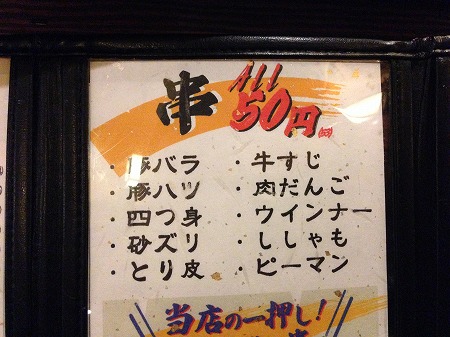 串 All 50円
・豚バラ
・豚ハツ
・四つ身
・砂ズリ
・とり皮
・牛すじ
・肉だんご
・ウインナー
・ししゃも
・ピーマン
当店の一押し!